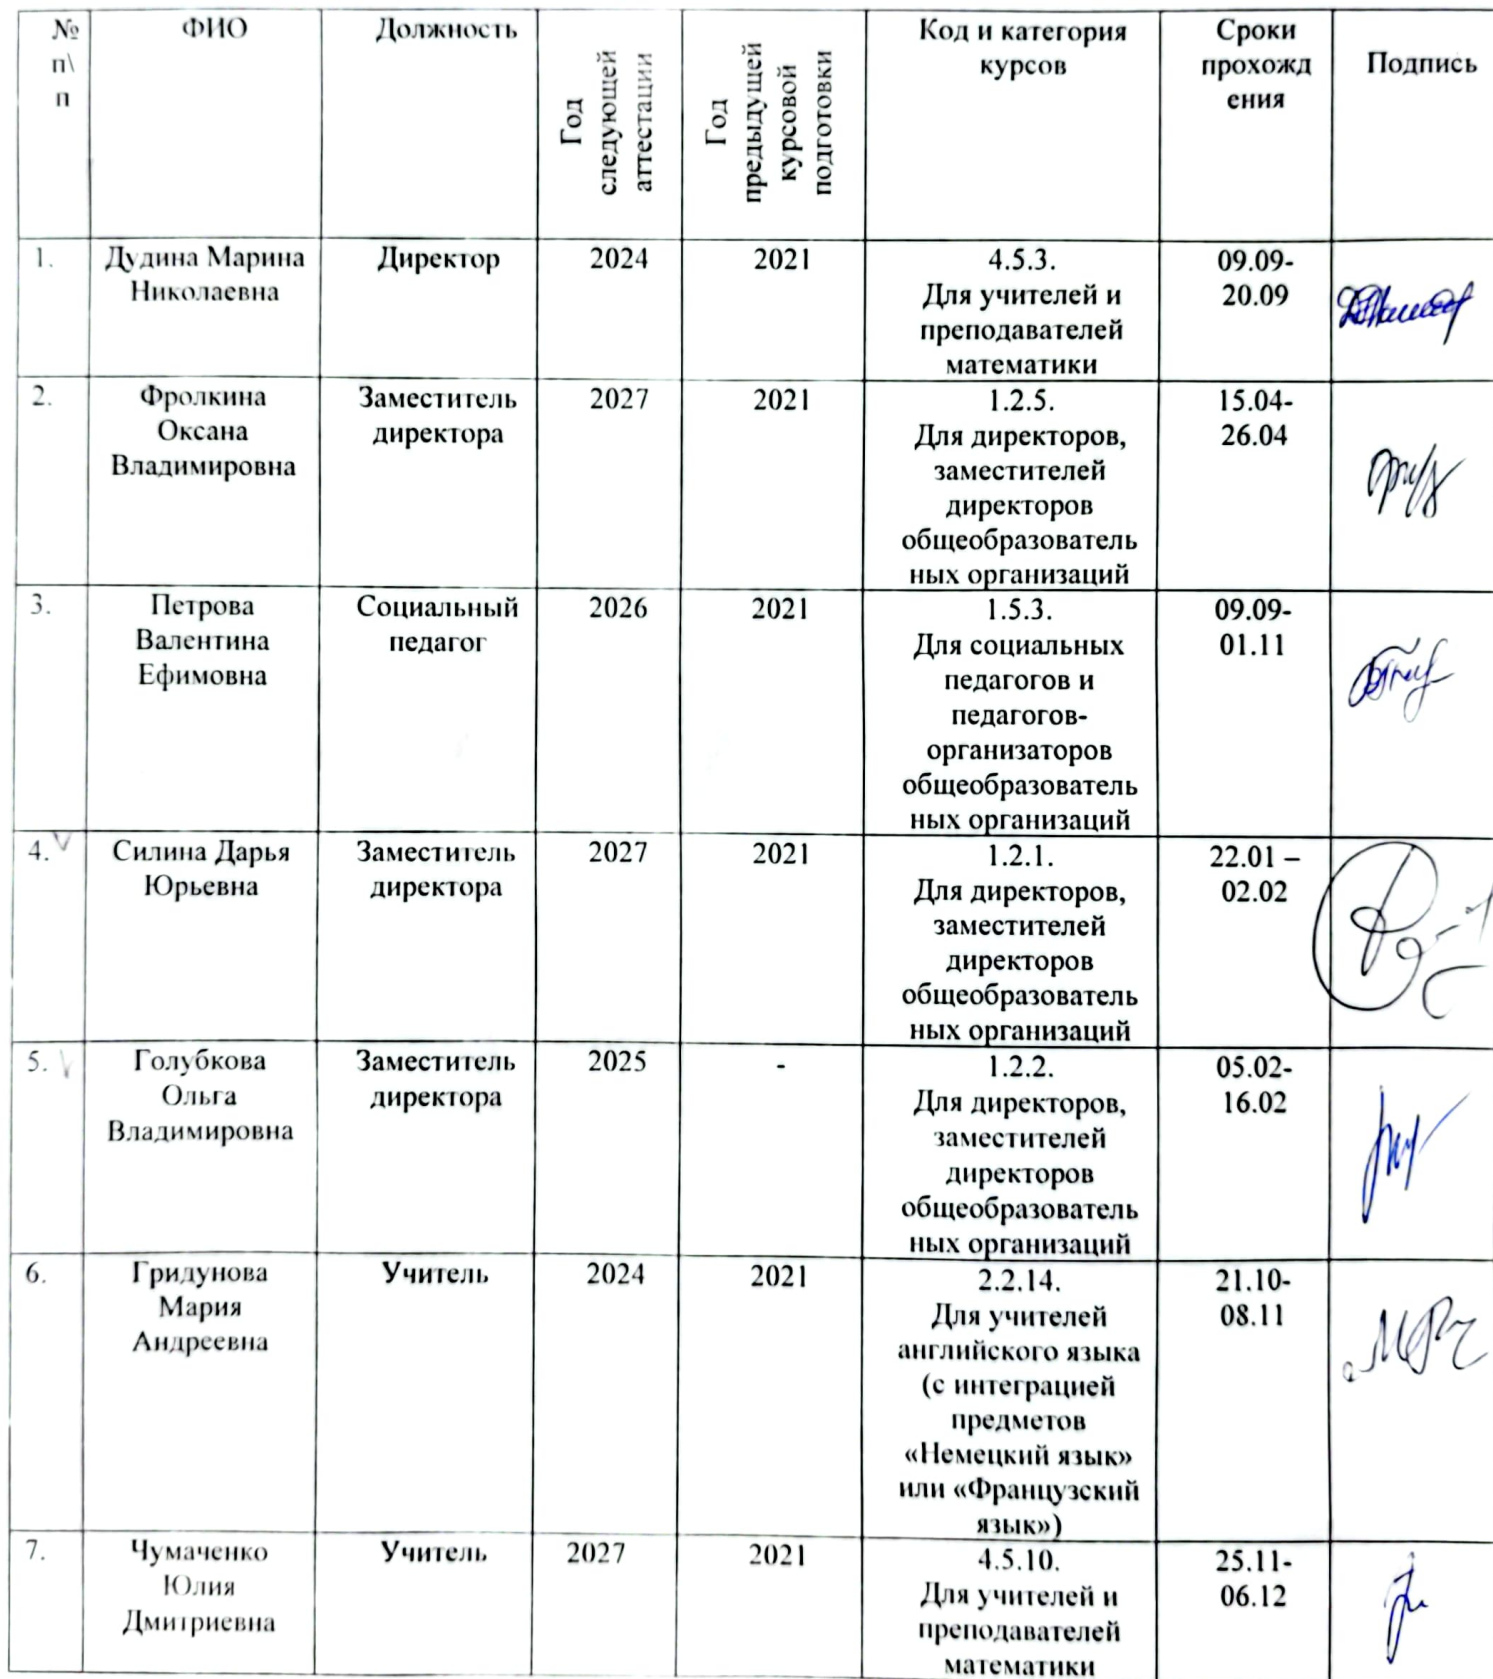 № п\ п
ФИО
Должность
Год следующей аттестации
Год предыдущей курсовой подготовки
Код и категория курсов
Сроки прохожд ения
Подпись
1.
Дудина Марина
Николаевна
Директор
2024
2021
4.5.3.
Для учителей и
преподавателей
математики
09.09-
20.09
2.
Фролкина
Оксана
Владимировна
Заместитель
директора
2027
2021
1.2.5.
Для директоров,
заместителей
директоров
общеобразователь
ных организаций
15.04-
26.04
3.
Петрова
Валентина
Ефимовна
Социальный
педагог
2026
2021
1.5.3.
Для социальных
педагогов и
педагогов-
организаторов
общеобразователь
ных организаций
09.09-
01.11
4.
Силина Дарья
Юрьевна
Заместитель
директора
2027
2021
1.2.1.
Для директоров,
заместителей
директоров
общеобразователь
ных организаций
22.01 –
02.02
5.
Голубкова
Ольга
Владимировна
Заместитель
директора
2025
-
1.2.2.
Для директоров,
заместителей
директоров
общеобразователь
ных организаций
05.02-
16.02
6.
Гридунова
Мария
Андреевна
Учитель
2024
2021
2.2.14.
Для учителей
английского языка
(с интеграцией
предметов
«Немецкий язык»
или «Французский
язык»)
21.10-
08.11
7.
Чумаченко
Юлия
Дмитриевна
Учитель
2027
2021
4.5.10.
Для учителей и
преподавателей
математики
25.11-
06.12